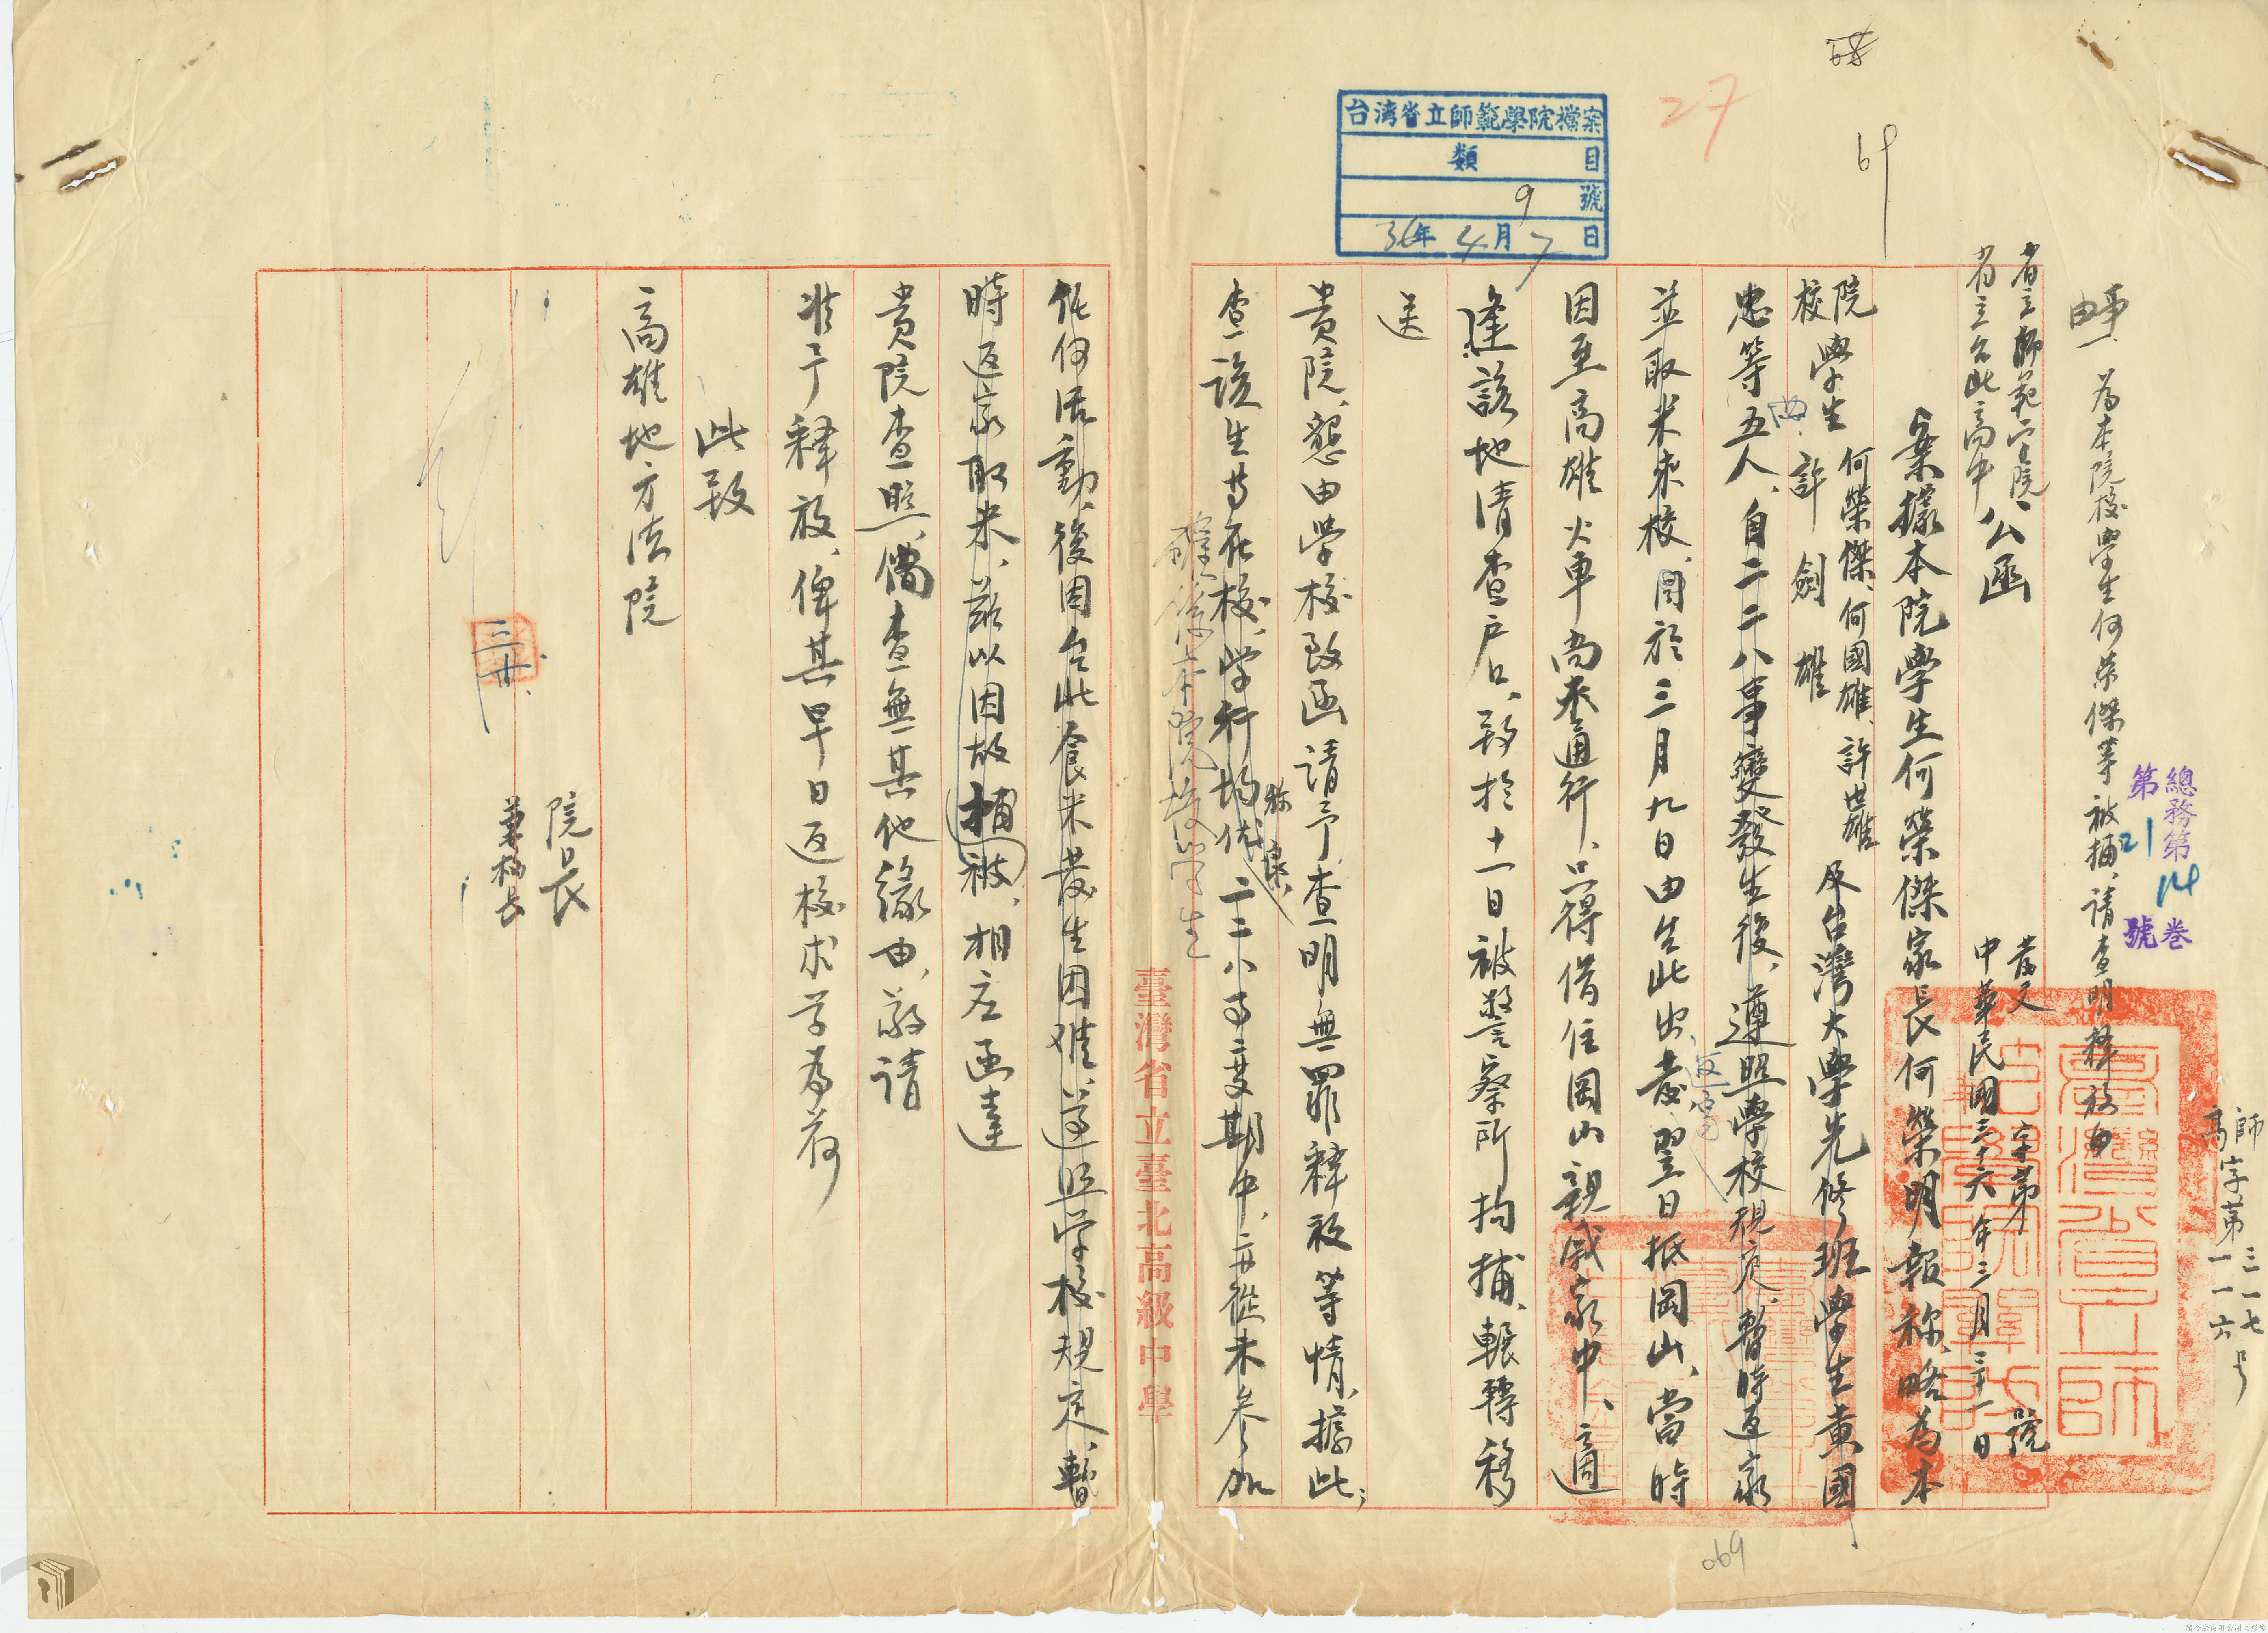 68
69
27
台湾省立師範學院檔案
類 目
9 號
36年4月7日
師
高字第三一七
一一六号
總務第14卷
第21號
事由、為本院校學生何荣傑等被捕、請查明釋放由
省立師範学院
省立台北高中 公函
發文 字第 號
中華民國三十六年三月三十一日
案據本院学生何榮傑家長何榮明報称、略為本
院
校學生 何榮傑、何國雄、許世雄
許劍雄 及台灣大學先修班學生黃國
忠等五人、自二二八事變發生後、遵照學校規定、暫時返家
並取米來校、因於三月九日由生北出發、翌日抵岡山、當時
返家
因至高雄火車尚未通行、只得借住岡山親戚家中、適
逢該地清查户口、致於十一日被警察所拘捕、輾轉移
送
貴院、懇由学校致函請予查明無罪釋放等情、據此；
查該生等在校、学行均優 二二八事变期中、亦從未參加
称良、
確係本院校学生
臺灣省立臺北高級中學
任何活動、後因台北食米發生困难、遵照学校規定、暫
時返家取米、茲以因故捕被、相应函達
貴院查照、倘查無其他緣由、敬請
准予释放、俾其早日返校求学為荷
此致
高雄地方法院
院長
兼校長
三、廿、
069